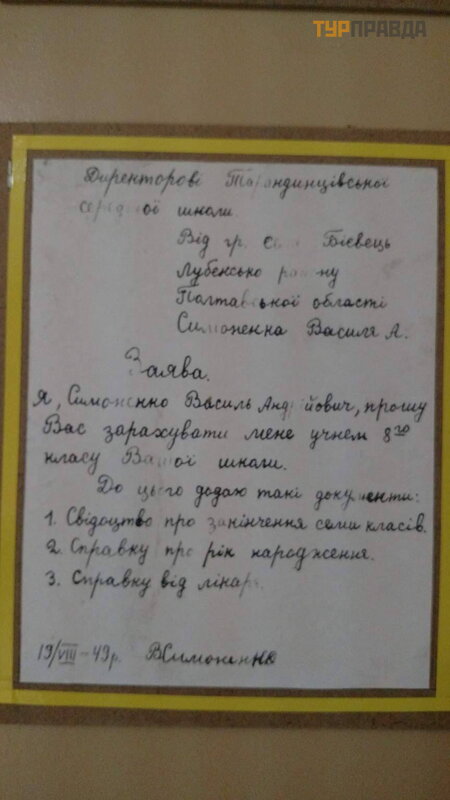 ТУРПРАВДА
Директорові Тарандинцівської
середньої школи.
Від гр. села Бієвець
Лубенсько району
Полтавської области
Симоненка Василя А.
Заява.
Я, Симоненко Василь Андрійович, прошу
Вас зарахувати мене учнем 8го
класу Вашої школи.
До цього додаю такі документи:
1. Свідоцтво про закінчення семи класів.
2. Справку про рік народження.
3. Справку від лікаря.
19/VIII – 49р. ВСимоненко